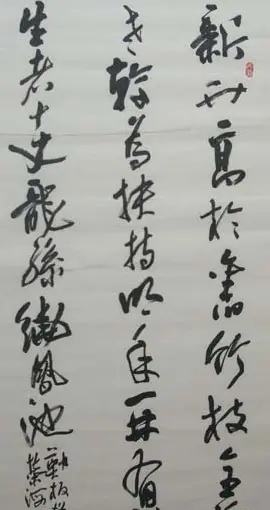 新竹高於舊竹枝全
老幹為扶持明年再有
生者十丈龍孫繞鳳池
鄭板